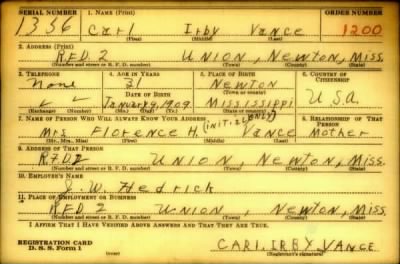 SERIAL NUMBER 1. NAME (Print) ORDER NUMBER
1356 Carl Irby Vance 1200
(First) (Middle) (Last)
2. ADDRESS (Print)
R.F.D. 2 Union, Newton, Miss.
(Number and street or R. F. D. number) (Town) (County) (State)
3. TELEPHONE 4. AGE IN YEARS 5. PLACE OF BIRTH 6. COUNTRY OF CITIZENSHIP
None 31 Newton
DATE OF BIRTH (Town or county)
January 9, 1909 Mississippi U.S.A.
(Exchange) (Number) (Mo.) (Day) (Yr.) (State or country)
7. NAME OF PERSON WHO WILL ALWAYS KNOW YOUR ADDRESS 8. RELATIONSHIP OF THAT PERSON
Mrs Florence H. (INITIAL ONLY) Vance Mother
(Mr., Mrs., Miss) (First) (Middle) (Last)
9. ADDRESS OF THAT PERSON
R.F.D. 2 Union, Newton, Miss.
(Number and street or R. F. D. number) (Town) (County) (State)
10. EMPLOYER'S NAME
J. W. Hedrick
11. PLACE OF EMPLOYMENT OR BUSINESS
R.F.D. 2 Union, Newton, Miss.
(Number and street or R. F. D. number) (Town) (County) (State)
I AFFIRM THAT I HAVE VERIFIED ABOVE ANSWERS AND THAT THEY ARE TRUE.
REGISTRATION CARD
D. S. S. Form 1 CARL IRBY VANCE
(Registrant's signature)